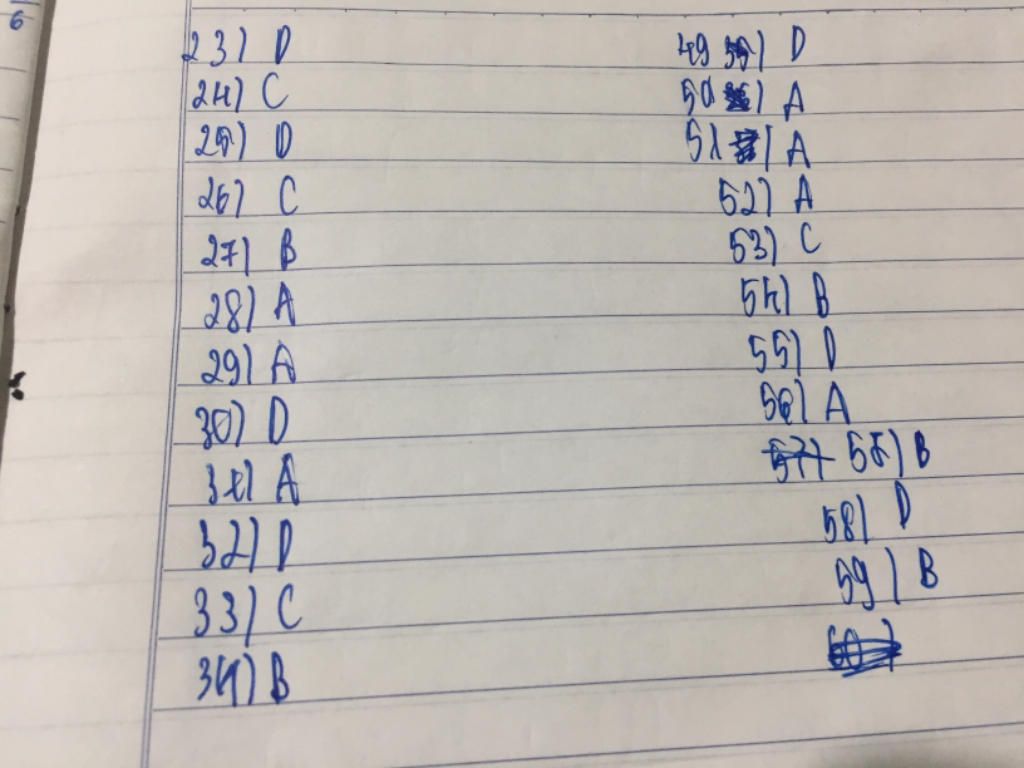 6
23) D
24) C
25) D
26) C
27) B
28) A
29) A
30) D
31) A
32) D
33) C
34) B
49 ) D
50 ) A
51 ) A
52) A
53) C
54) B
55) D
56) A
57) 57) B
58) D
59) B
60)